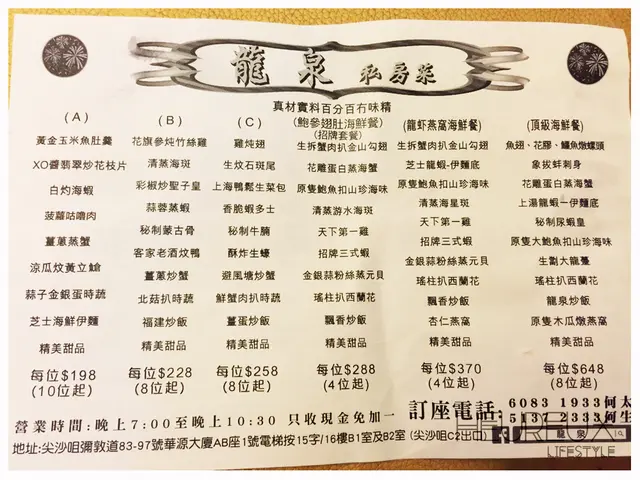 龍泉 私房菜
真材實料百分百冇味精
(A)
黃金玉米魚肚羹
XO醬翡翠炒花枝片
白灼海蝦
菠蘿咕嚕肉
薑蔥蒸蟹
涼瓜炆黃立䱽
蒜子金銀蛋時蔬
芝士海鮮伊麵
精美甜品
每位$198
(10位起)
(B)
花旗參炖竹絲雞
清蒸海斑
彩椒炒聖子皇
蒜蓉蒸蝦
秘制蒙古骨
客家老酒炆鴨
薑蔥炒蟹
北菇扒時蔬
福建炒飯
精美甜品
每位$228
(8位起)
(C)
雞炖翅
生炆石斑尾
上海鴨鬆生菜包
香脆蝦多士
秘制牛腩
酥炸生蠔
避風塘炒蟹
鮮蟹肉扒時蔬
薑蛋炒飯
精美甜品
每位$258
(8位起)
(鮑參翅肚海鮮餐)
(招牌套餐)
生拆蟹肉扒金山勾翅
花雕蛋白蒸海蟹
原隻鮑魚扣山珍海味
清蒸游水海斑
天下第一雞
招牌三式蝦
金銀蒜粉絲蒸元貝
瑤柱扒西蘭花
飄香炒飯
精美甜品
每位$288
(4位起)
(龍虾燕窩海鮮餐)
生拆蟹肉扒金山勾翅
芝士龍蝦-伊麵底
原隻鮑魚扣山珍海味
清蒸海星斑
天下第一雞
招牌三式蝦
金銀蒜粉絲蒸元貝
瑤柱扒西蘭花
飄香炒飯
杏仁燕窩
精美甜品
每位$370
(4位起)
(頂級海鮮餐)
魚翅、花膠、鱷魚燉螺頭
象拔蚌刺身
花雕蛋白蒸海蟹
上湯龍蝦一伊麵底
秘制尿蝦皇
原隻大鮑魚扣山珍海味
生劏大龍躉
瑤柱扒西蘭花
龍泉炒飯
原隻木瓜燉燕窩
精美甜品
每位$648
(8位起)
營業時間:晚上7:00至晚上10:30 只收現金免加一
訂座電話: 6083 1933何太
5137 2333何生
地址:尖沙咀彌敦道83-97號華源大廈AB座1號電梯按15字/16樓B1室及B2室 (尖沙咀C2出口)
龍泉
LIFESTYLE